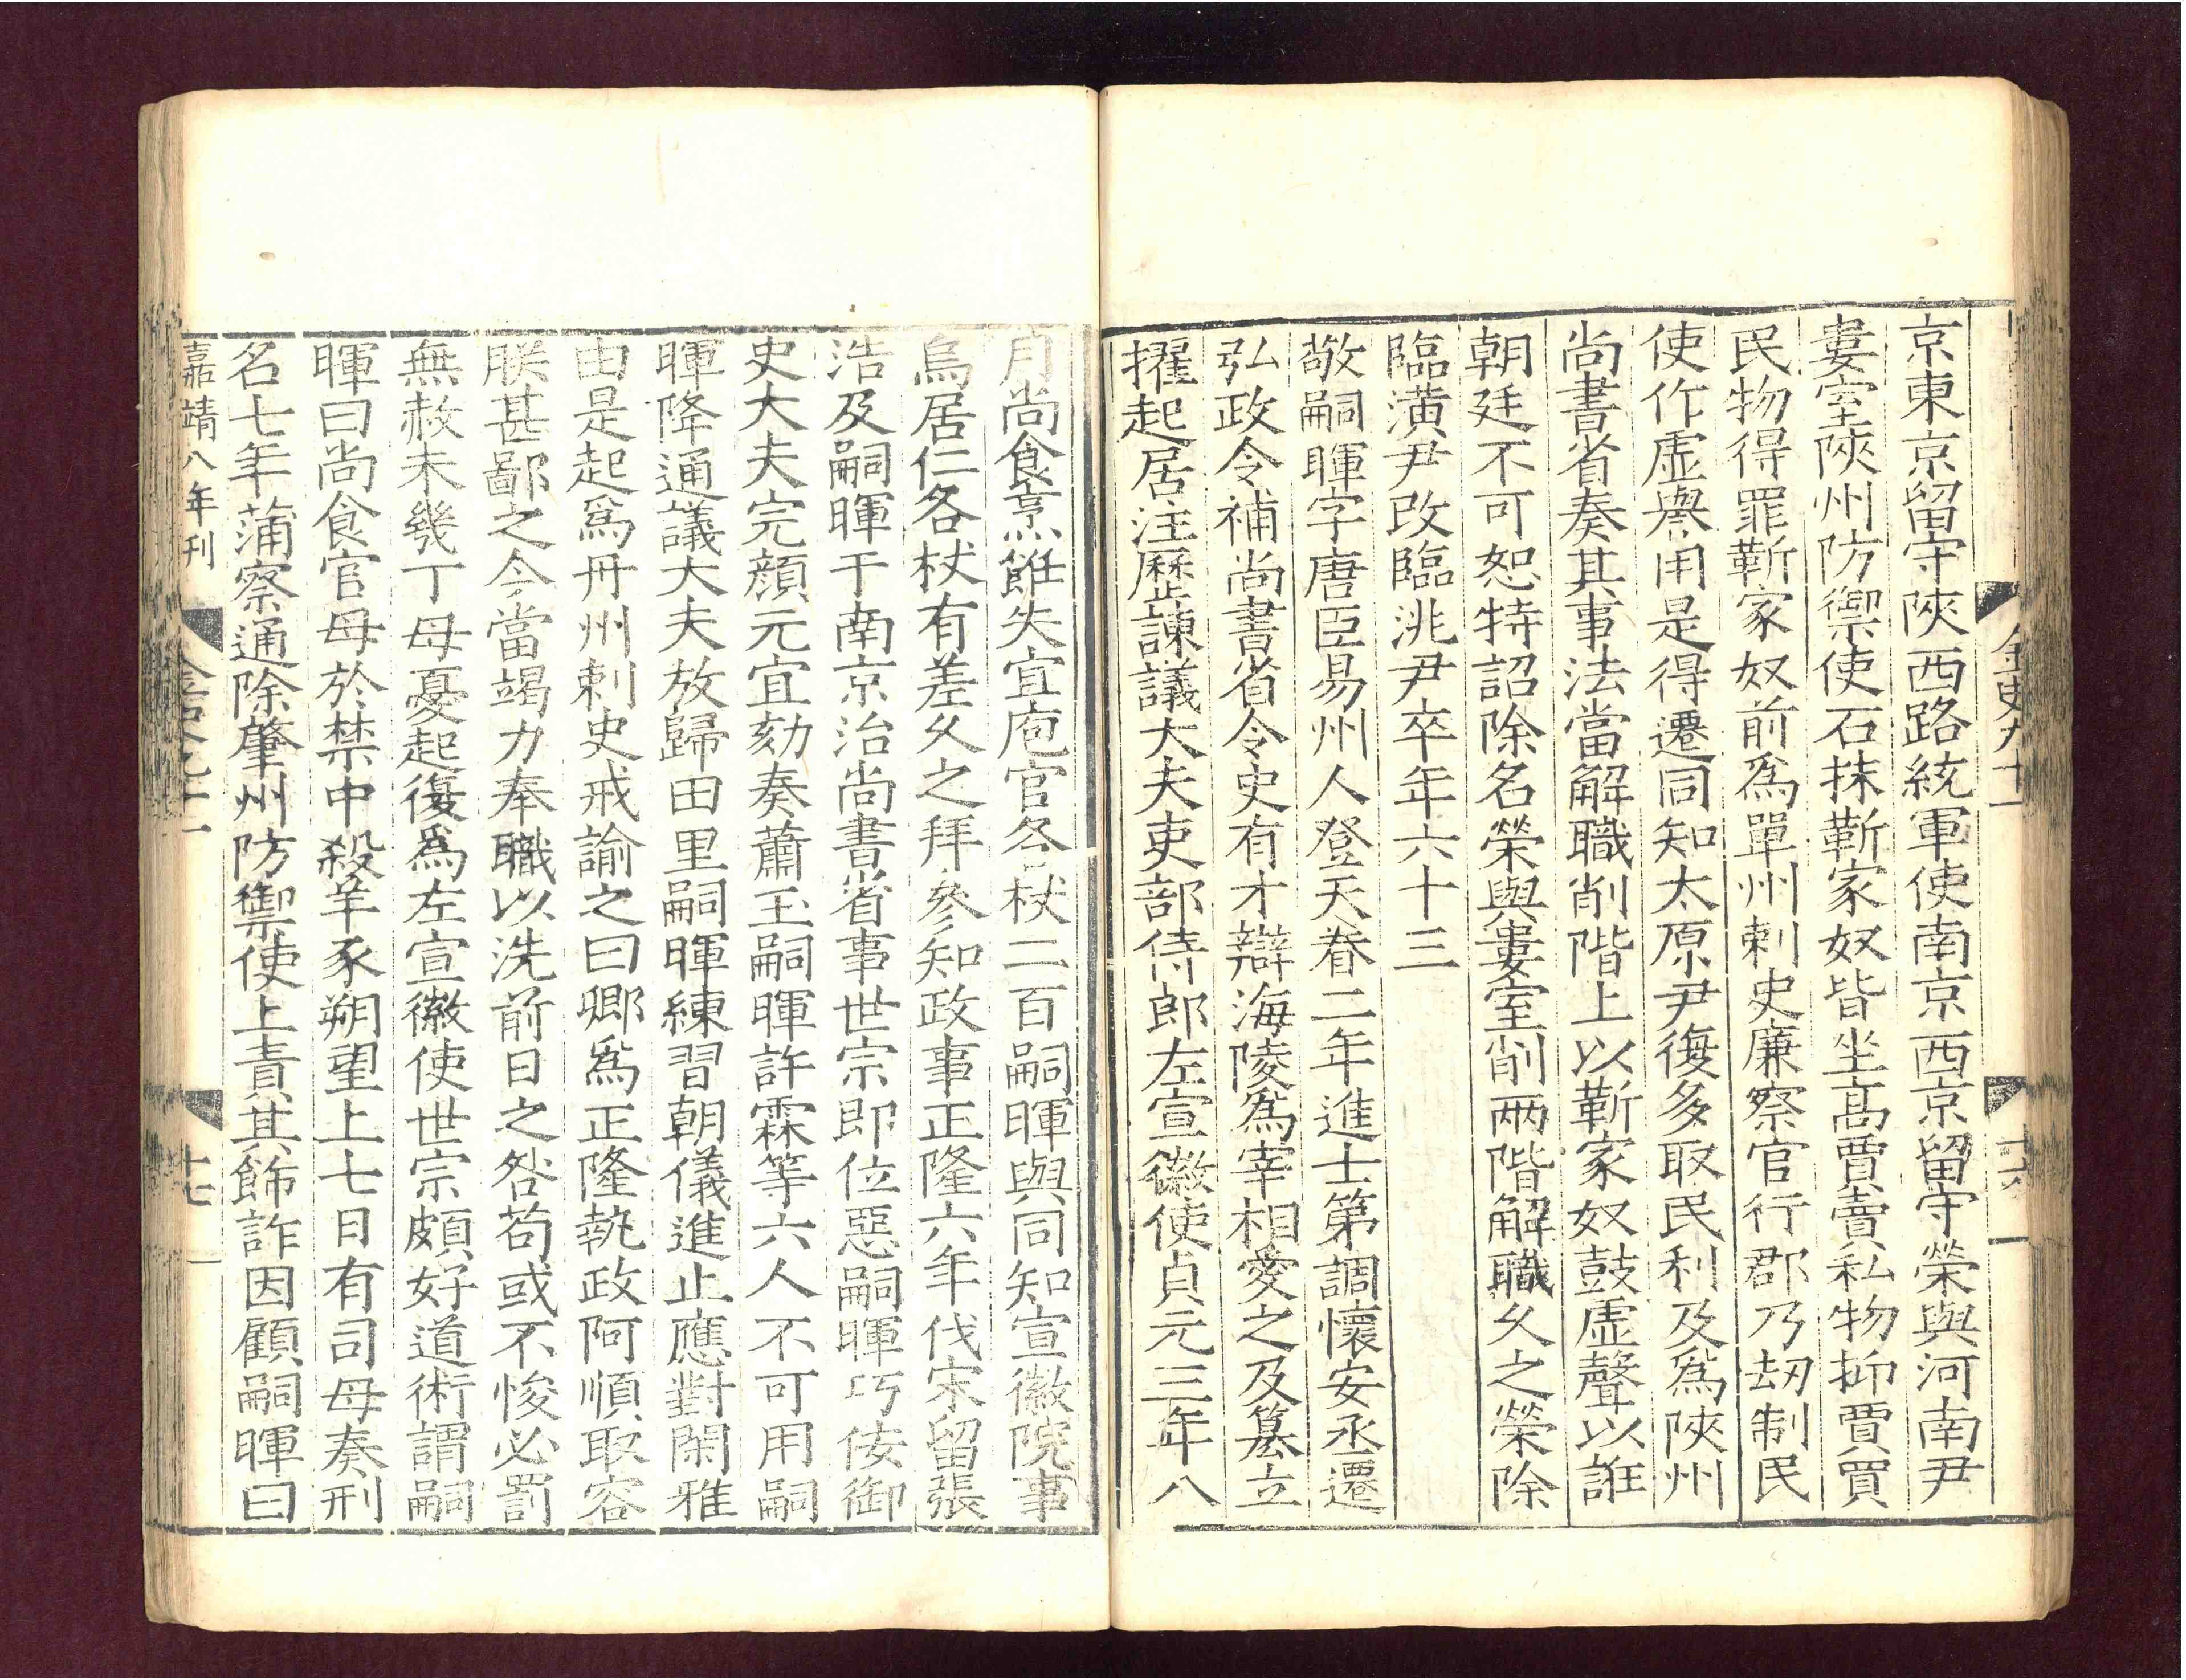 京東京留守陝西路統軍使南京西京留守榮與河南尹
婁室陝州防禦使石抹靳家奴皆坐高賈賣私物抑賈買
民物得罪靳家奴前爲單州刺史廉察官行郡乃劫制民
使作虛譽用是得遷同知太原尹復多取民利及爲陝州
尚書省奏其事法當解職削階上以靳家奴鼓虛聲以誑
朝廷不可恕特詔除名榮與婁室削兩階解職久之榮除
臨潢尹改臨洮尹卒年六十三
敬嗣暉字唐臣易州人登天眷二年進士第調懷安丞遷
弘政令補尚書省令史有才辯海陵爲宰相愛之及篡立
擢起居注歷諫議大夫吏部侍郎左宣徽使貞元三年八
金史九十一
十六
月尚食烹飪失宜庖官各杖二百嗣暉與同知宣徽院事
烏居仁各杖有差久之拜參知政事正隆六年伐宋留張
浩及嗣暉于南京治尚書省事世宗即位惡嗣暉巧佞御
史大夫完顏元宜劾奏蕭玉嗣暉許霖等六人不可用嗣
暉降通議大夫放歸田里嗣暉練習朝儀進止應對閑雅
由是起爲丹州刺史戒諭之曰卿爲正隆執政阿順取容
朕甚鄙之今當竭力奉職以洗前日之咎苟或不悛必罰
無赦未幾丁母憂起復爲左宣徽使世宗頗好道術謂嗣
暉曰尚食官毋於禁中殺羊豕朔望上七日有司毋奏刑
名七年蒲察通除肇州防禦使上責其飾詐因顧嗣暉曰
嘉靖八年刊
金史九十一
十七